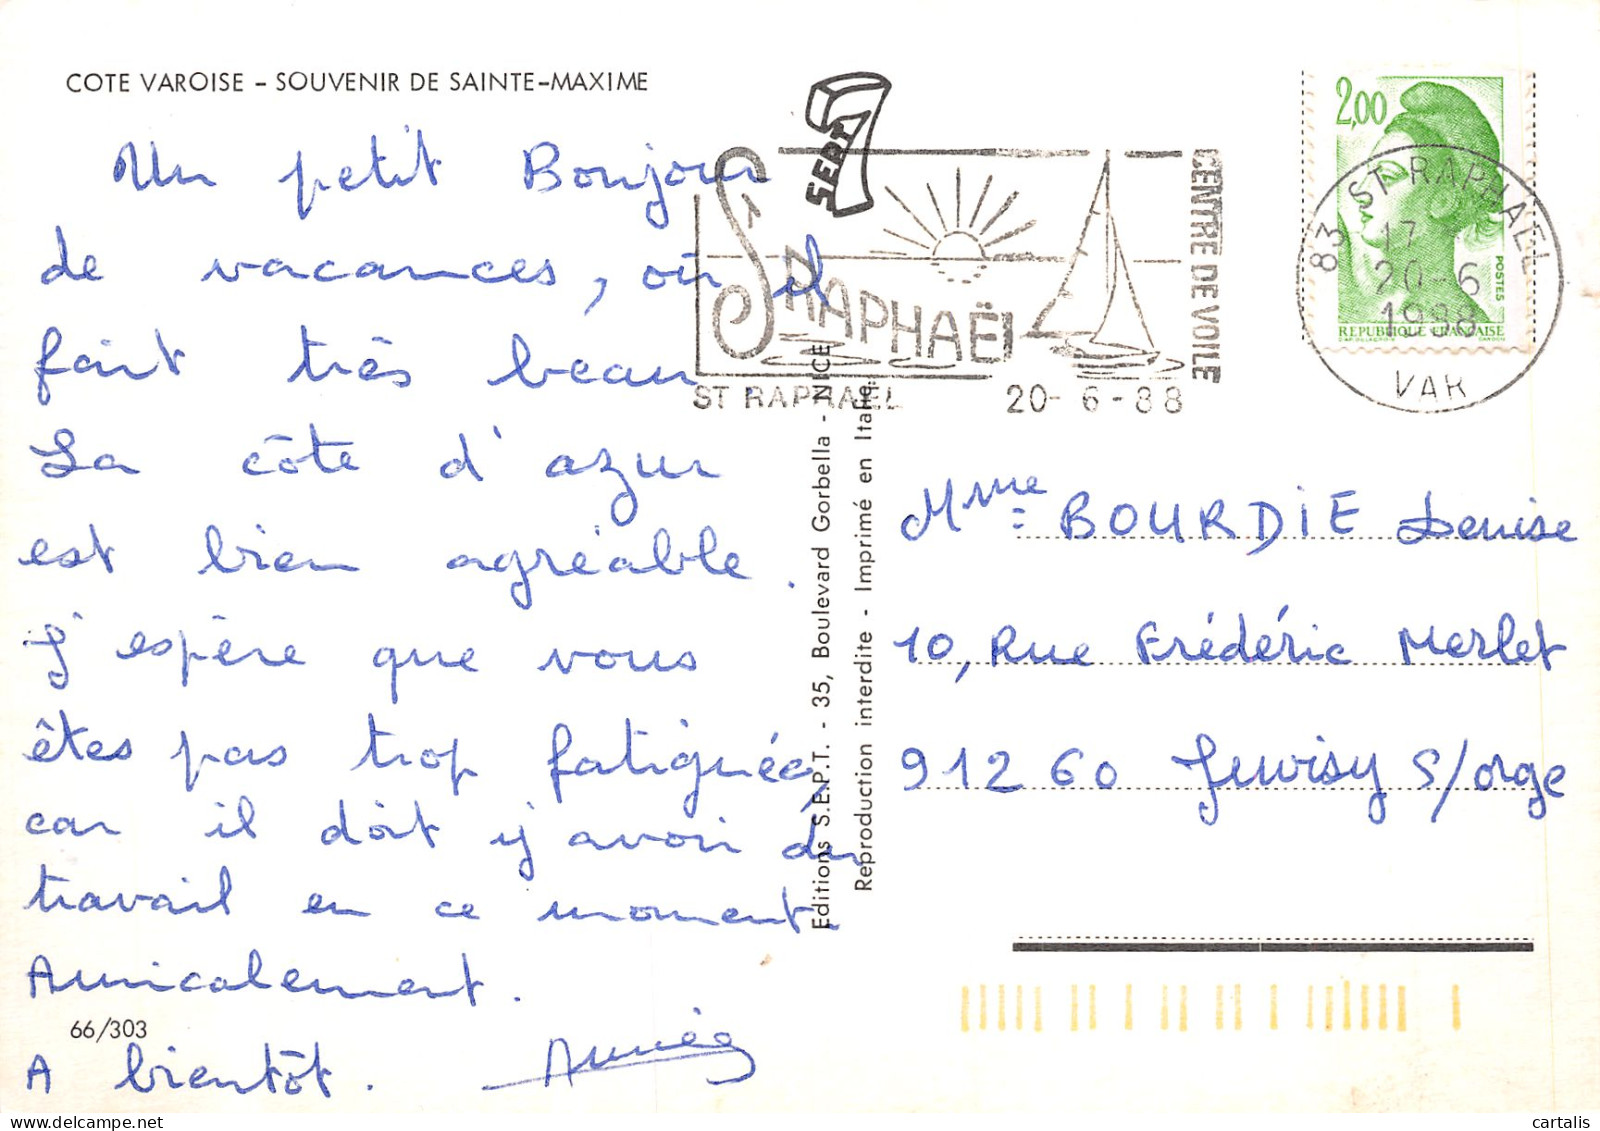 COTE VAROISE - SOUVENIR DE SAINTE-MAXIME
Un petit Bonjour
de vacances, où il
fait très beau
La côte d'azur
est bien agréable.
J'espère que vous
êtes pas trop fatiguée,
car il doit y avoir du
travail en ce moment.
Amicalement.
66/303
A bientôt.
Editions S.E.P.T. - 35, Boulevard Gorbella - NICE
Reproduction interdite - Imprimé en Italie
SEPT
ST RAPHAËL
CENTRE DE VOILE
ST RAPHAEL 20-6-88
2,00
POSTES
REPUBLIQUE FRANÇAISE
83 ST RAPHAEL
17
20-6
1988
VAR
Mme BOURDIE Denise
10, Rue Frédéric Merlet
91260 Juvisy S/orge
cartalis